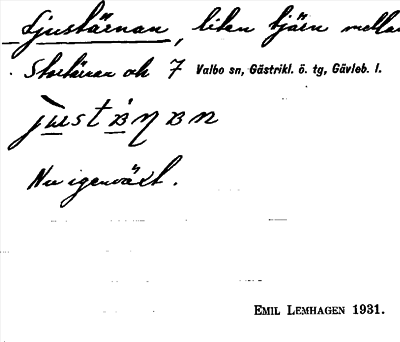 Ljustäernan, liten tjärn mella
Stortärnan och 7 Valbo sn, Gästrikl. ö. tg, Gävleb. l.
Nu igenväxt.
EMIL LEMHAGEN 1931.